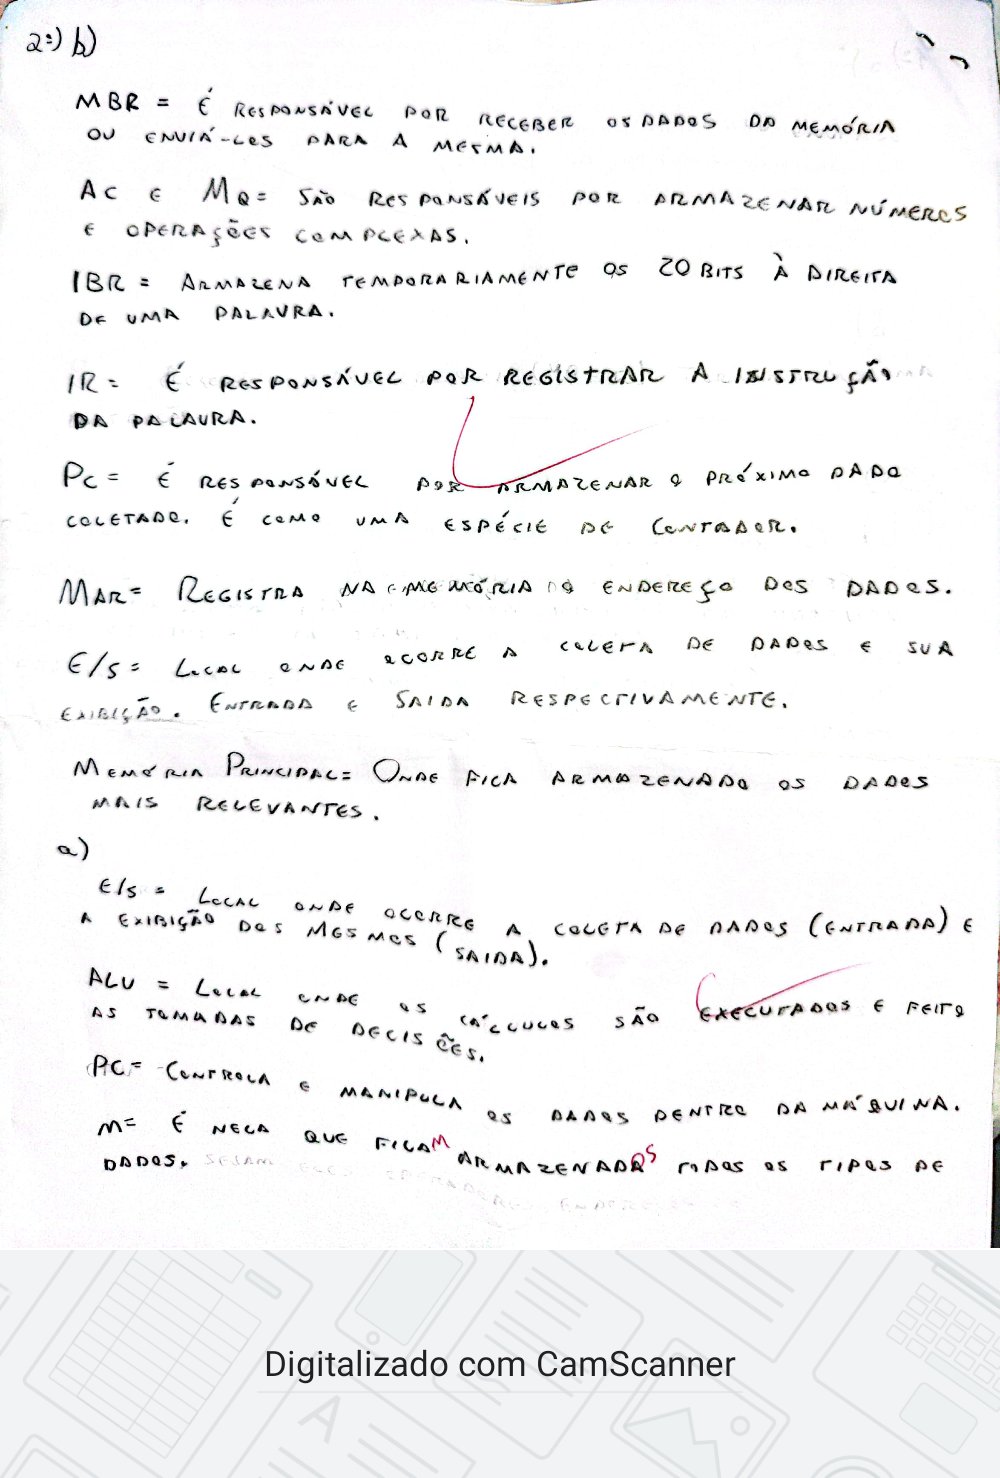 2º) b)
MBR = É RESPONSÁVEL POR RECEBER OS DADOS DA MEMÓRIA
OU ENVIÁ-LOS PARA A MESMA.
AC E MQ = SÃO RESPONSÁVEIS POR ARMAZENAR NÚMEROS
E OPERAÇÕES COMPLEXAS.
IBR = ARMAZENA TEMPORARIAMENTE OS 20 BITS À DIREITA
DE UMA PALAVRA.
IR = É RESPONSÁVEL POR REGISTRAR A INSTRUÇÃO
DA PALAVRA.
PC = É RESPONSÁVEL POR ARMAZENAR O PRÓXIMO DADO
COLETADO. É COMO UMA ESPÉCIE DE CONTADOR.
MAR = REGISTRA NA MEMÓRIA O ENDEREÇO DOS DADOS.
E/S = LOCAL ONDE OCORRE A COLETA DE DADOS E SUA
EXIBIÇÃO. ENTRADA E SAIDA RESPECTIVAMENTE.
MEMÓRIA PRINCIPAL = ONDE FICA ARMAZENADO OS DADOS
MAIS RELEVANTES.
a)
E/S = LOCAL ONDE OCORRE A COLETA DE DADOS (ENTRADA) E
A EXIBIÇÃO DOS MESMOS (SAIDA).
ALU = LOCAL ONDE OS CÁLCULOS SÃO EXECUTADOS E FEITO
AS TOMADAS DE DECISÕES.
PC = CONTROLA E MANIPULA OS DADOS DENTRO DA MÁQUINA.
M = É NELA QUE FICAM ARMAZENADOS TODOS OS TIPOS DE
DADOS.
Digitalizado com CamScanner